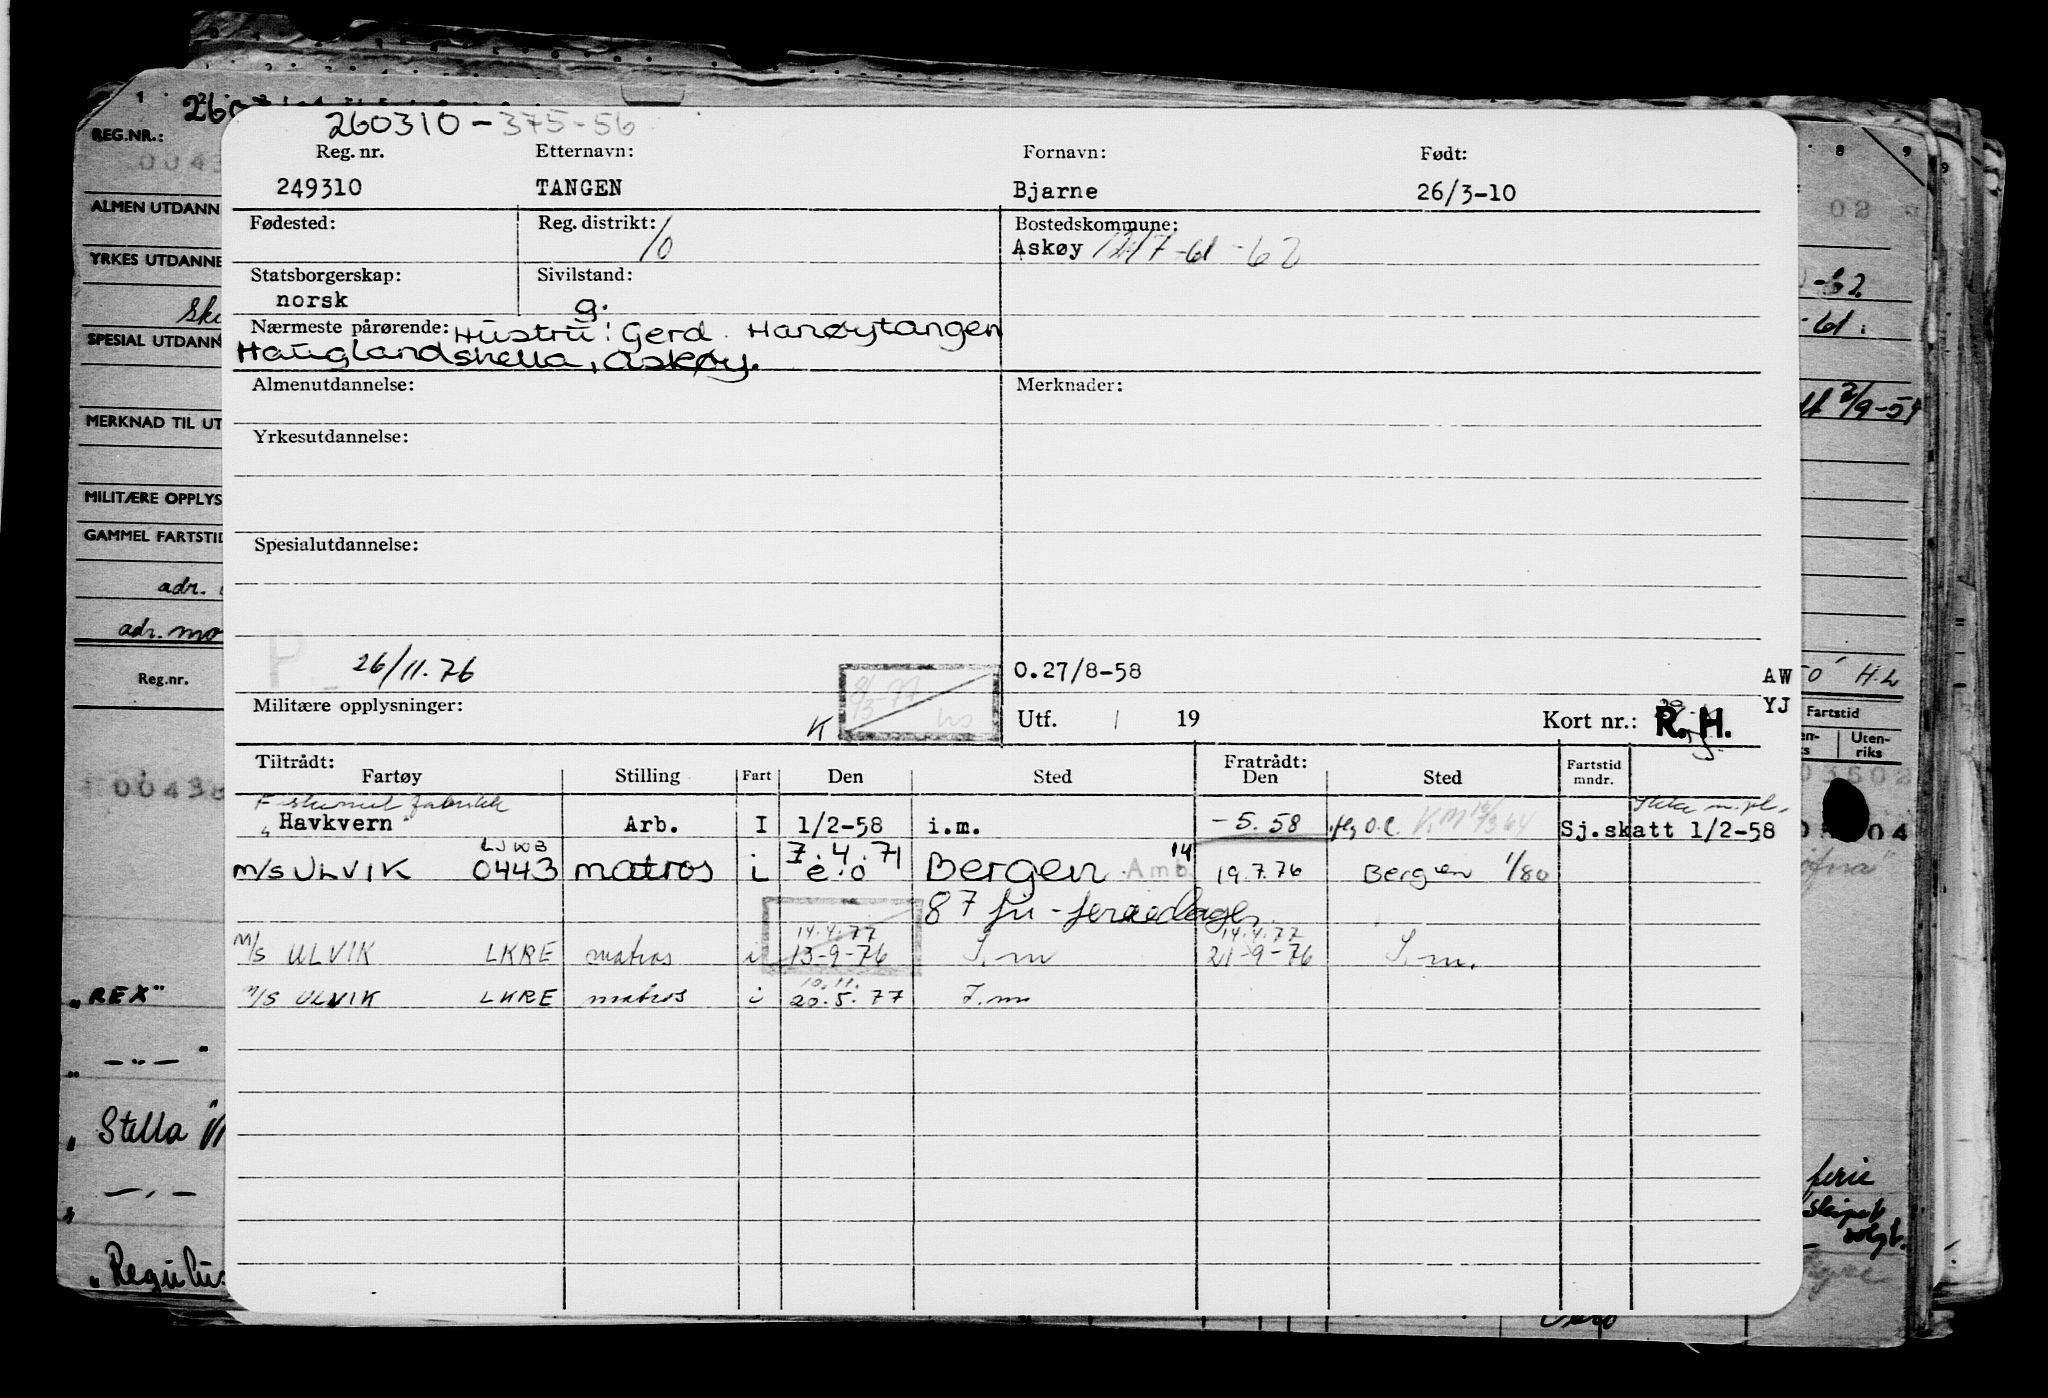 260310-375-56
Reg. nr. Etternavn: Fornavn: Født:
249310 TANGEN Bjarne 26/3-10
Fødested: Reg. distrikt: 10 Bostedskommune:
Askøy -61 -62
Statsborgerskap: Sivilstand:
norsk g.
Nærmeste pårørende: Hustru: Gerd Hanøytangen
Hauglandshella, Askøy.
Almenutdannelse: Merknader:
Yrkesutdannelse:
Spesialutdannelse:
P
26/11.76 O.27/8-58 AW
Militære opplysninger: K Utf. 19 Kort nr.: R.H. YJ
Tiltrådt: Fratrådt:
Fartøy Stilling Fart Den Sted Den Sted Fartstid mndr.
"Havkvern" Arb. I 1/2-58 i.m. -5.58 Sj.skatt 1/2-58
LJWB
m/s ULVIK 0443 matros i 7.4.71 Bergen 14 Amb. 19.7.76 Bergen 1/80
e.o
87 fri-feriedager
14.4.77 14.4.77
M/S ULVIK LKRE matros i 13-9-76 I.m 21-9-76 I.m.
10.11.
M/S ULVIK LKRE matros i 20.5.77 I.m
REG.NR.:
ALMEN UTDANN
YRKES UTDANNE
SPESIAL UTDANN
MERKNAD TIL UT
MILITÆRE OPPLYS
GAMMEL FARTSTID
adr.
adr. mo
Reg.nr.
"REX"
Stella
"Regulus
-62
-61.
2/9-54
H.L
Fartstid
Uten-
riks
ferie